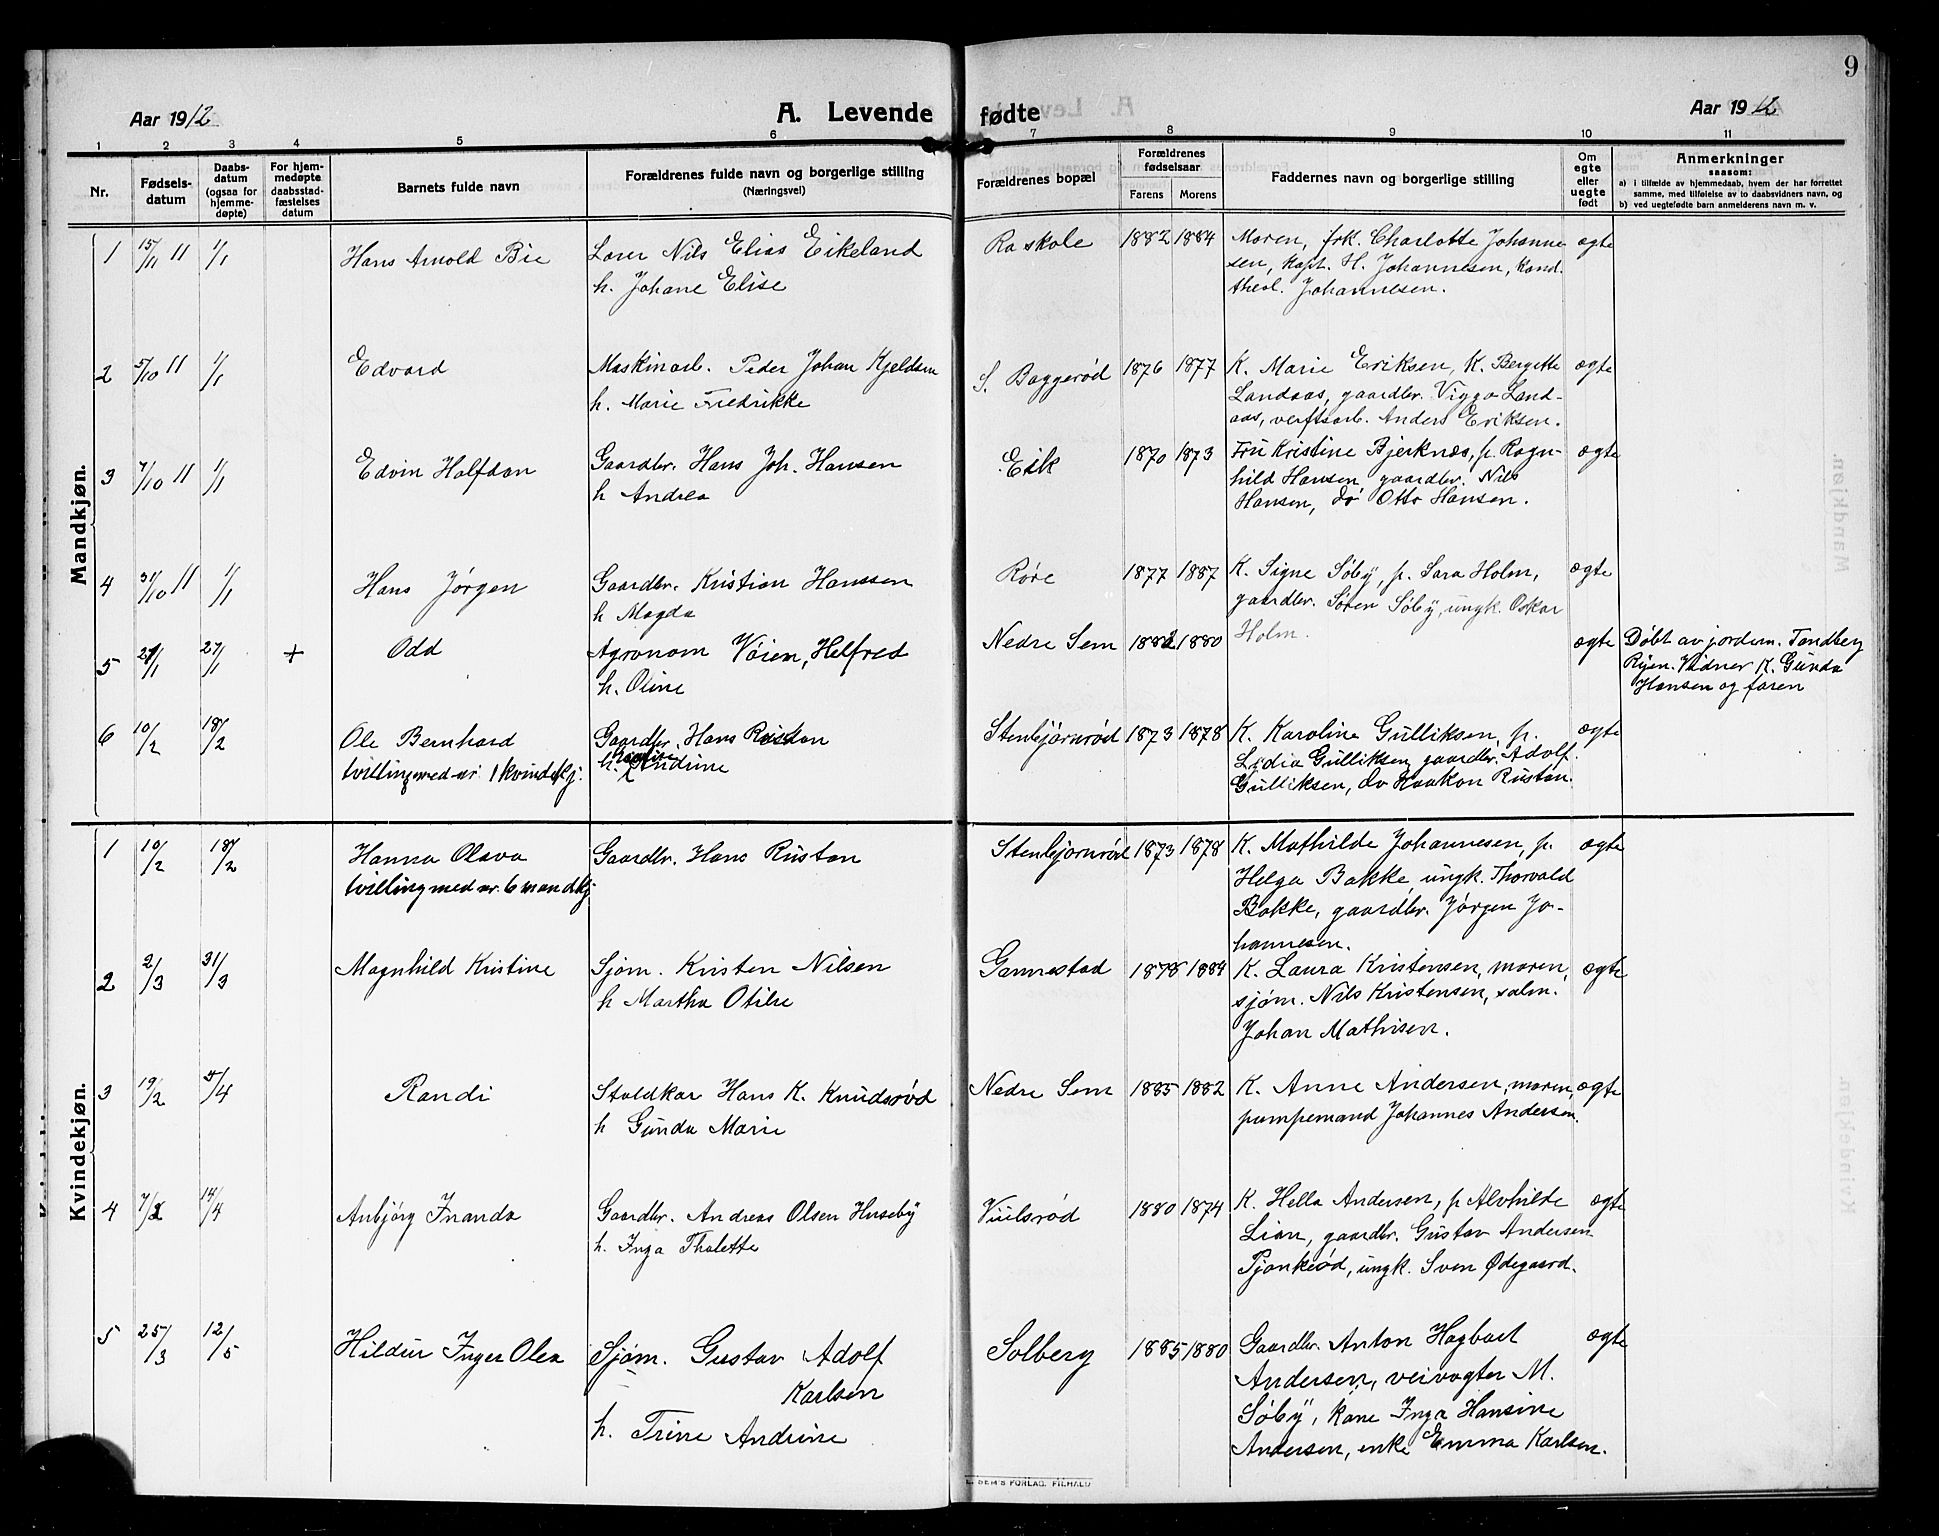 9
Aar 1912
A. Levende fødte
Aar 1912
1 2 3 4 5 6 7 8 9 10 11
Nr.
Fødsels-
datum
Daabs-
datum
(ogsaa for
hjemme-
døpte)
For hjem-
medøpte
daabsstad-
fæstelses
datum
Barnets fulde navn
Forældrenes fulde navn og borgerlige stilling
(Næringsvei)
Forældrenes bopæl
Forældrenes
fødselsaar
Farens Morens
Faddernes navn og borgerlige stilling
Om
egte
eller
uegte
født
Anmerkninger
saasom:
a) i tilfælde av hjemmedaab, hvem der har forrettet
samme, med tilføielse av to daabsvidners navn, og
b) ved uegtefødte barn anmelderens navn m. v.
Mandkjøn.
1 15/11 11 1/1 Hans Arnold Bie Lærer Nils Elias Eikeland Ra skole 1882 1884 Moren, frk. Charlotte Johanne
h. Johane Elise sen, kapt. H. Johannesen, kand.
theol. Johannesen. ægte
2 5/10 11 1/1 Edvard Maskinarb. Peder Johan Kjeldsen S. Baggerød 1876 1877 K. Marie Eriksen, K. Bergette ægte
h. Marie Fredrikke Landaas, gaardbr. Viggo Land-
aas, verftsarb. Anders Eriksen.
3 7/10 11 1/1 Edvin Halfdan Gaardbr. Hans Joh. Hansen Eik 1870 1873 Fru Kristine Bjerknæs, p. Ragn- ægte
h Andrea hild Hansen, gaardbr. Nils
Hansen, do Otto Hansen.
4 31/10 11 1/1 Hans Jørgen Gaardbr. Kristian Hanssen Røre 1877 1887 K. Signe Søby, p. Sara Holm, ægte
h Magda gaardbr. Søren Søby, ungk. Oskar
Holm.
5 27/1 + Odd Agronom Vøien, Helfred Nedre Sem 1882 1880 ægte Døbt av jordem. Tandberg
h. Oline Ryen. Vidner K. Gunda
Hansen og faren
6 10/2 18/2 Ole Bernhard Gaardbr. Hans Rustan Stenbjørnrød 1873 1878 K. Karoline Gulliksen, p. ægte
tvilling med nr. 1 kvindekj. h. Andrine Lydia Gulliksen, gaardbr. Adolf
Gulliksen, do Haakon Rustan.
Kvindekjøn.
1 10/2 18/2 Hanna Olava Gaardbr. Hans Rustan Stenbjørnrød 1873 1878 K. Mathilde Johannesen, p. ægte
tvilling med nr. 6 mandkj. Helga Bakke, ungk. Thorvald
Bakke, gaardbr. Jørgen Jo-
hannesen.
2 2/3 31/3 Magnhild Kristine Sjøm. Kristen Nilsen Gannestad 1878 1884 K. Laura Kristensen, moren, ægte
h Martha Otilie sjøm. Nils Kristensen, salm.
Johan Mathisen.
3 19/2 /4 Randi Staldkar Hans K. Knudsrød Nedre Sem 1885 1882 K. Anne Andersen, moren, ægte
h Gunda Marie pumpemand Johannes Andersen.
4 14/4 Anbjörg Inanda Gaardbr. Andreas Olsen Huseby 1880 1874 K. Hella Andersen, p Alvhilde ægte
h. Inga Thalette Lian, gaardbr. Gustav Andersen
ungk. Sven Ødegaard.
5 25/3 12/5 Hildur Inger Olea Sjøm. Gustav Adolf Solberg 1885 1880 Gaardbr. Anton Hagbart ægte
Karlsen Andersen, veivogter M.
h. Trine Andrine Søby, kone Inga Hansine
Andersen, enke Emma Karlsen.
SEM'S FORLAG, F.HALD